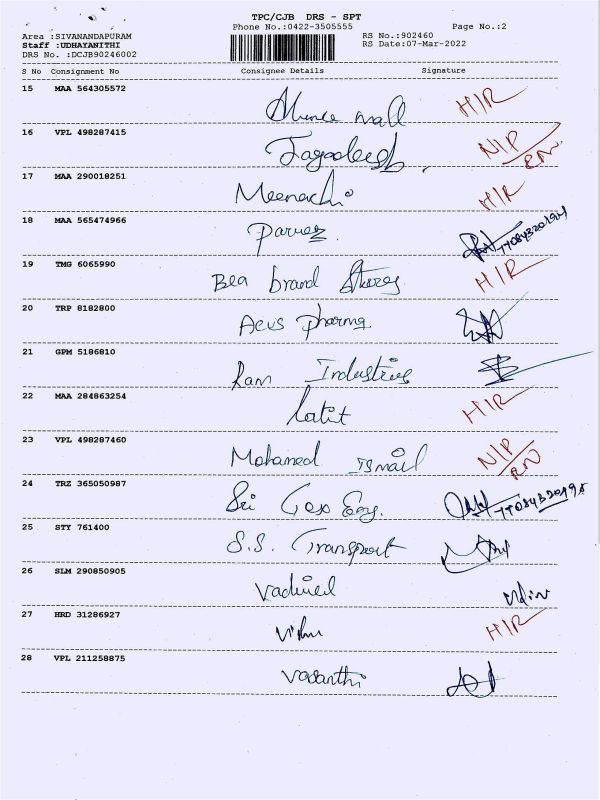 TPC/CJB DRS - SPT
Phone No.:0422-3505555 Page No.:2
Area :SIVANANDAPURAM RS No.:902460
Staff :UDHAYANITHI RS Date:07-Mar-2022
DRS No. :DCJB90246002
S No Consignment No Consignee Details Signature
15 MAA 564305572 mall H/R
16 VPL 498287415 Jagadeesh N/P
17 MAA 290018251 Meenachi H/R
18 MAA 565474966 Parvez
19 TMG 6065990 Bea brand Stores H/R
20 TRP 8182800 Pharma
21 GPM 5186810 Ram Industries
22 MAA 284863254 Lalit H/R
23 VPL 498287460 Mohamed Ismail N/P
24 TRZ 365050987 Sri Gex Eng.
25 STY 761400 S.S. Transport
26 SLM 290850905 Vadivel
27 HRD 31286927 H/R
28 VPL 211258875 Vasanthi